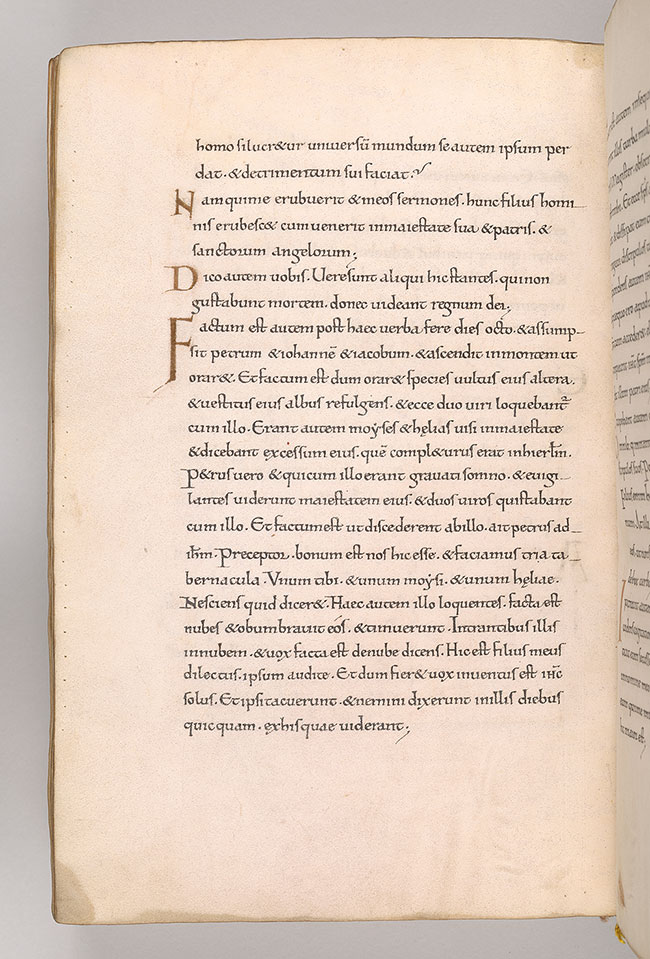 homo si lucr&ur uniuersū mundum se autem ipsum per
dat. & detrimentum sui faciat.
Nam qui me erubuerit & meos sermones. hunc filius homi
nis erubesc& cum uenerit in maiestate sua & patris. &
sanctorum angelorum;
Dico autem uobis. Uere sunt aliqui hic stantes. qui non
gustabunt mortem. donec uideant regnum dei;
Factum est autem post haec uerba fere dies octo. & assump
sit petrum & iohannē & iacobum. & ascendit in montem ut
orar&. Et factum est dum orar& species uultus eius altera.
& uestitus eius albus refulgens. & ecce duo uiri loquebant᷑
cum illo. Erant autem moyses & hęlias uisi in maiestate
& dicebant excessum eius. quē compl&urus erat in hierlm̄.
P&rus uero & qui cum illo erant grauati somno. & euigi
lantes uiderunt maiestatem eius. & duos uiros qui stabant
cum illo. Et factum est ut discederent ab illo. ait petrus ad
ihm̄. Preceptor. bonum est nos hic esse. & faciamus tria ta
bernacula. Vnum tibi. & unum moysi. & unum hęliae.
Nesciens quid dicer&. Haec autem illo loquentes. facta est
nubes & obumbrauit eos. & timuerunt. Intrantibus illis
in nubem. & uox facta est de nube dicens. Hic est filius meus
dilectus. ipsum audite. Et dum fier& uox inuentus est ihc̄
solus. Et ipsi tacuerunt. & nemini dixerunt in illis diebus
quicquam. ex his quae uiderant;